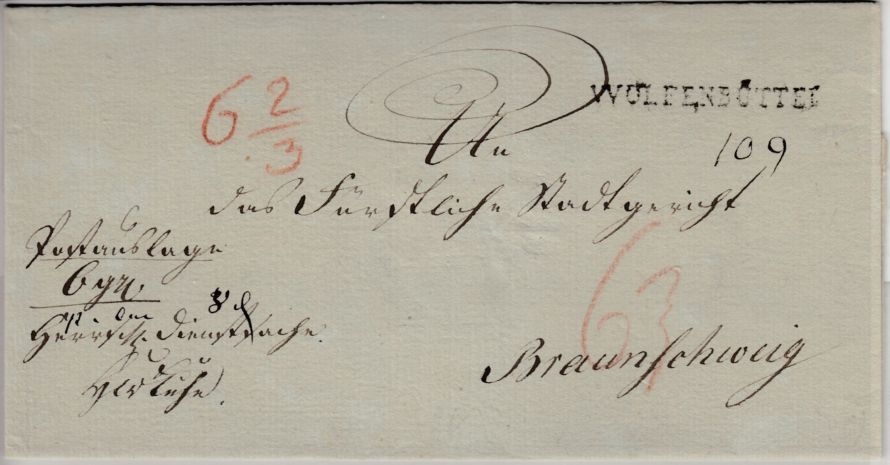 WOLFENBÜTTEL
6 2/3
An
109
das Fürstliche Stadtgericht
Postauslage
6 gr.
Herrsch. Dienstsache.
63
Braunschweig